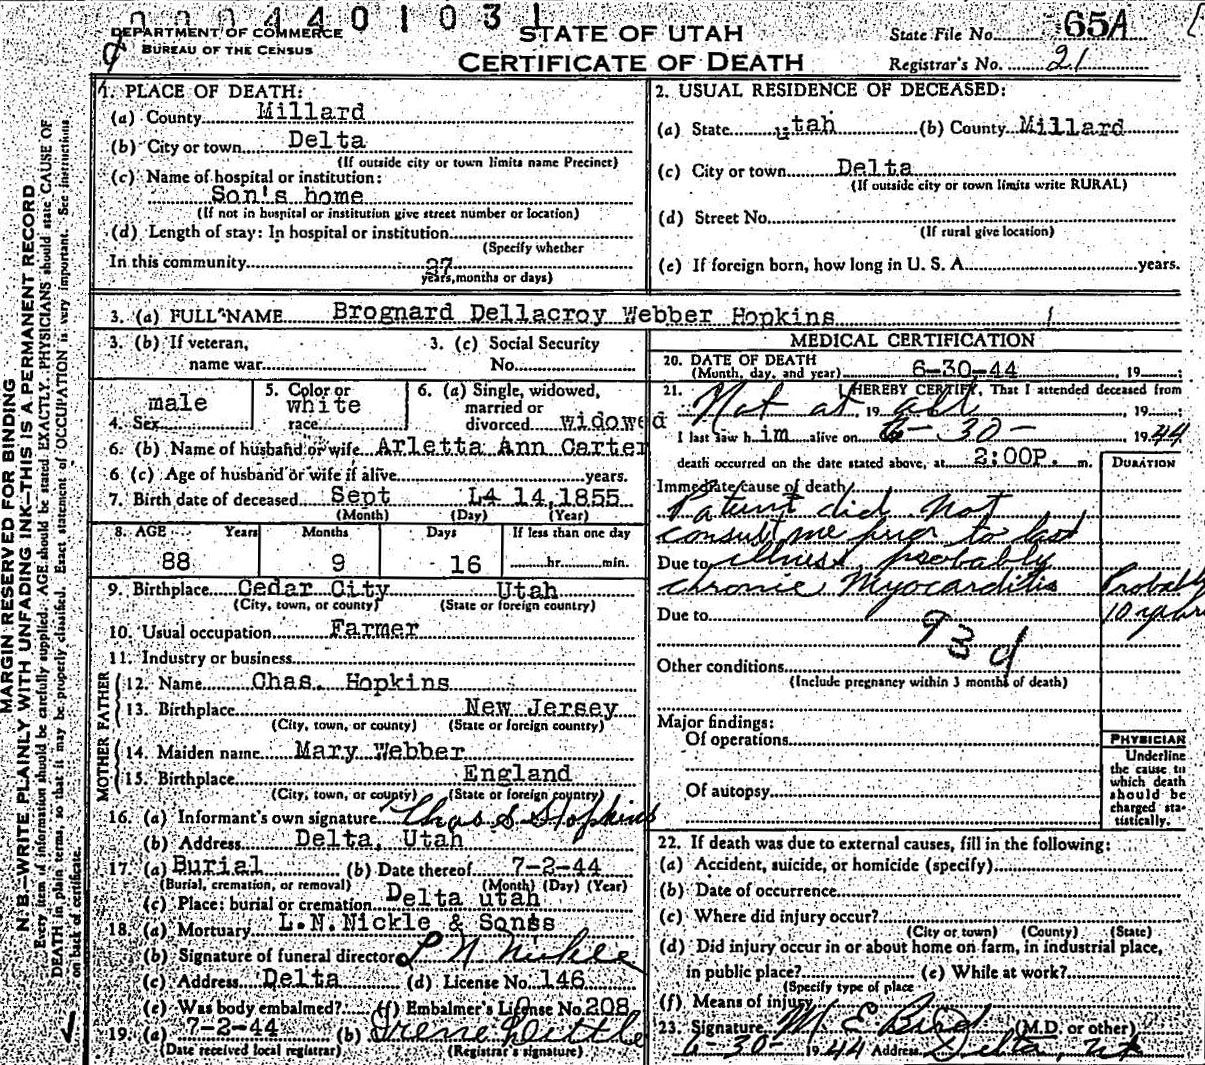 0004401031
DEPARTMENT OF COMMERCE
BUREAU OF THE CENSUS
STATE OF UTAH
CERTIFICATE OF DEATH
State File No. 65A
Registrar's No. 21
MARGIN RESERVED FOR BINDING
N. B.—WRITE PLAINLY WITH UNFADING INK—THIS IS A PERMANENT RECORD
Every item of information should be carefully supplied. AGE should be stated EXACTLY. PHYSICIANS should state CAUSE OF
DEATH in plain terms, so that it may be properly classified. Exact statement of OCCUPATION is very important. See instructions
on back of certificate.
1. PLACE OF DEATH:
(a) County Millard
(b) City or town Delta
(If outside city or town limits name Precinct)
(c) Name of hospital or institution:
Son's home
(If not in hospital or institution give street number or location)
(d) Length of stay: In hospital or institution
(Specify whether
In this community 37
years, months or days)
2. USUAL RESIDENCE OF DECEASED:
(a) State utah (b) County Millard
(c) City or town Delta
(If outside city or town limits write RURAL)
(d) Street No.
(If rural give location)
(e) If foreign born, how long in U. S. A. years.
3. (a) FULL NAME Brognard Dellacroy Webber Hopkins
3. (b) If veteran, 3. (c) Social Security
name war No.
4. Sex male 5. Color or race white 6. (a) Single, widowed, married or divorced widowed
6. (b) Name of husband or wife Arletta Ann Carter
6 (c) Age of husband or wife if alive years.
7. Birth date of deceased Sept L4 14,1855
(Month) (Day) (Year)
8. AGE Years Months Days If less than one day
88 9 16 hr. min.
9. Birthplace Cedar City Utah
(City, town, or county) (State or foreign country)
10. Usual occupation Farmer
11. Industry or business
FATHER
12. Name Chas. Hopkins
13. Birthplace New Jersey
(City, town, or county) (State or foreign country)
MOTHER
14. Maiden name Mary Webber
15. Birthplace England
(City, town, or county) (State or foreign country)
16. (a) Informant's own signature Chas S Hopkins
(b) Address Delta, Utah
17. (a) Burial (b) Date thereof 7-2-44
(Burial, cremation, or removal) (Month) (Day) (Year)
(c) Place: burial or cremation Delta utah
18. (a) Mortuary L.N.Nickle & Sonss
(b) Signature of funeral director L N Nickle
(c) Address Delta (d) License No. 146
(e) Was body embalmed? (f) Embalmer's License No. 208
19. (a) 7-2-44 (b) Irene Little
(Date received local registrar) (Registrar's signature)
MEDICAL CERTIFICATION
20. DATE OF DEATH
(Month, day, and year) 6-30-44 , 19 ;
21. I HEREBY CERTIFY, That I attended deceased from
Not at , 19 all , 19 ;
I last saw him alive on 6-30- 1944
death occurred on the date stated above, at 2:00P. m.
DURATION
Immediate cause of death
Patient did not
consult me prior to last
Due to illness, probably
chronic Myocarditis Probably
Due to 10 years
93d
Other conditions
(Include pregnancy within 3 months of death)
Major findings:
Of operations
Of autopsy
PHYSICIAN
Underline
the cause to
which death
should be
charged sta-
tistically.
22. If death was due to external causes, fill in the following:
(a) Accident, suicide, or homicide (specify)
(b) Date of occurrence
(c) Where did injury occur?
(City or town) (County) (State)
(d) Did injury occur in or about home on farm, in industrial place,
in public place? (e) While at work?
(Specify type of place
(f) Means of injury
23. Signature M E Bird (M.D. or other)
6-30- 1944 Address Delta, Ut